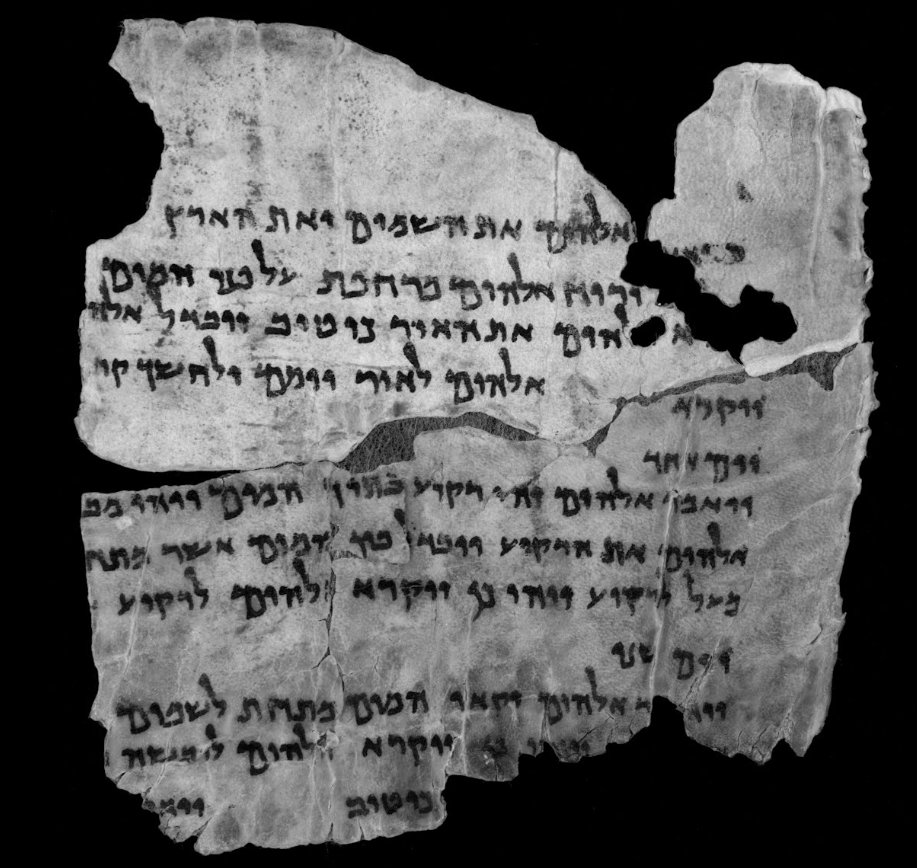 אלהים את השמים ואת הארץ
ורוח אלהים מרחפת על פני המים
אלהים את האור כי טוב ויבדל אלה
ויקרא אלהים לאור יומם ולחשך קר
יום אחד
ויאמר אלהים יהי רקיע בתוך המים ויהי מב
אלהים את הרקיע ויבדל בין המים אשר מתח
מעל לרקיע ויהי כן ויקרא אלהים לרקיע
יום שני
ויאמר אלהים יקאו המים מתחת לשמים
כן ויקרא אלהים ליבשה
כי טוב ויאמ